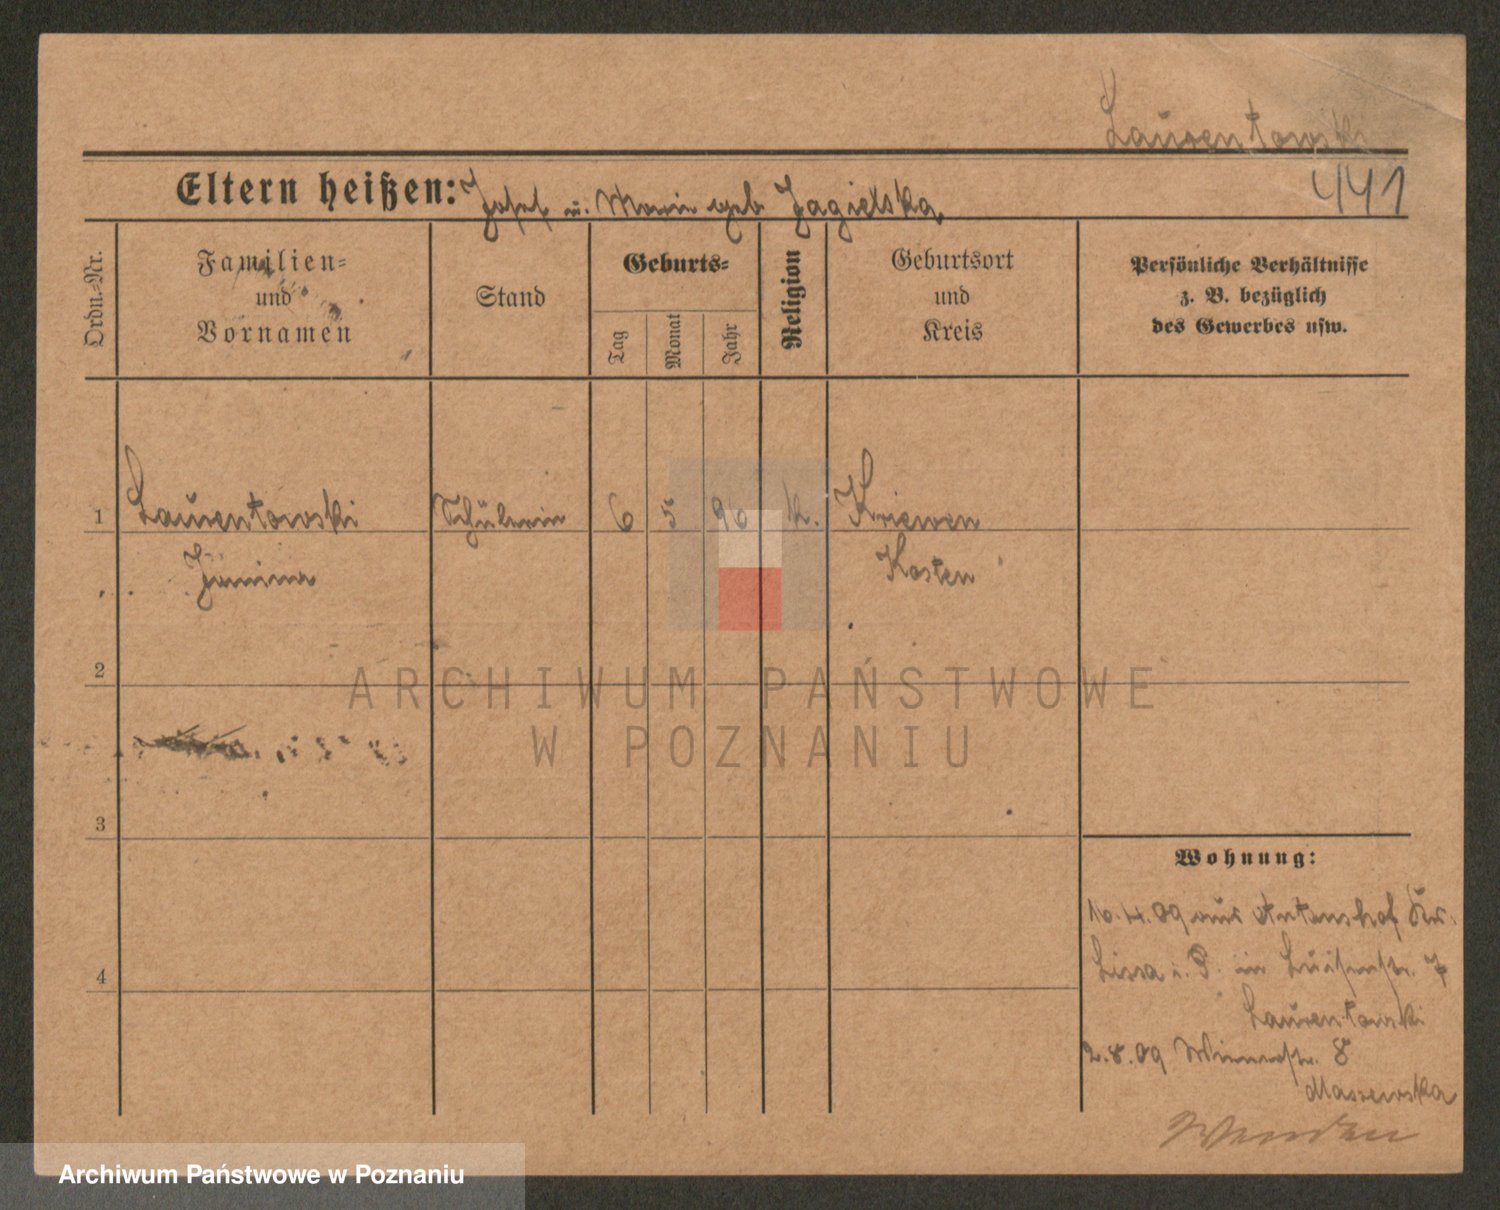 Laurentowski
Eltern heißen: Josef u. Marie geb. Jagielska
441
Ordn.-Nr.
Familien-
und
Vornamen
Stand
Geburts-
Tag
Monat
Jahr
Religion
Geburtsort
und
Kreis
Persönliche Verhältnisse
z. B. bezüglich
des Gewerbes usw.
1 Laurentowski Schülerin 6 5 96 k. Kriewen
Janina Kosten
2
ARCHIWUM PAŃSTWOWE
W POZNANIU
3
Wohnung:
10.4.09 aus Antonshof Kr.
4
Lissa i. P. in Luisenstr. 7
Laurentowski
2.8.09 Wienerstr. 8
Maszewska
Wenden
Archiwum Państwowe w Poznaniu